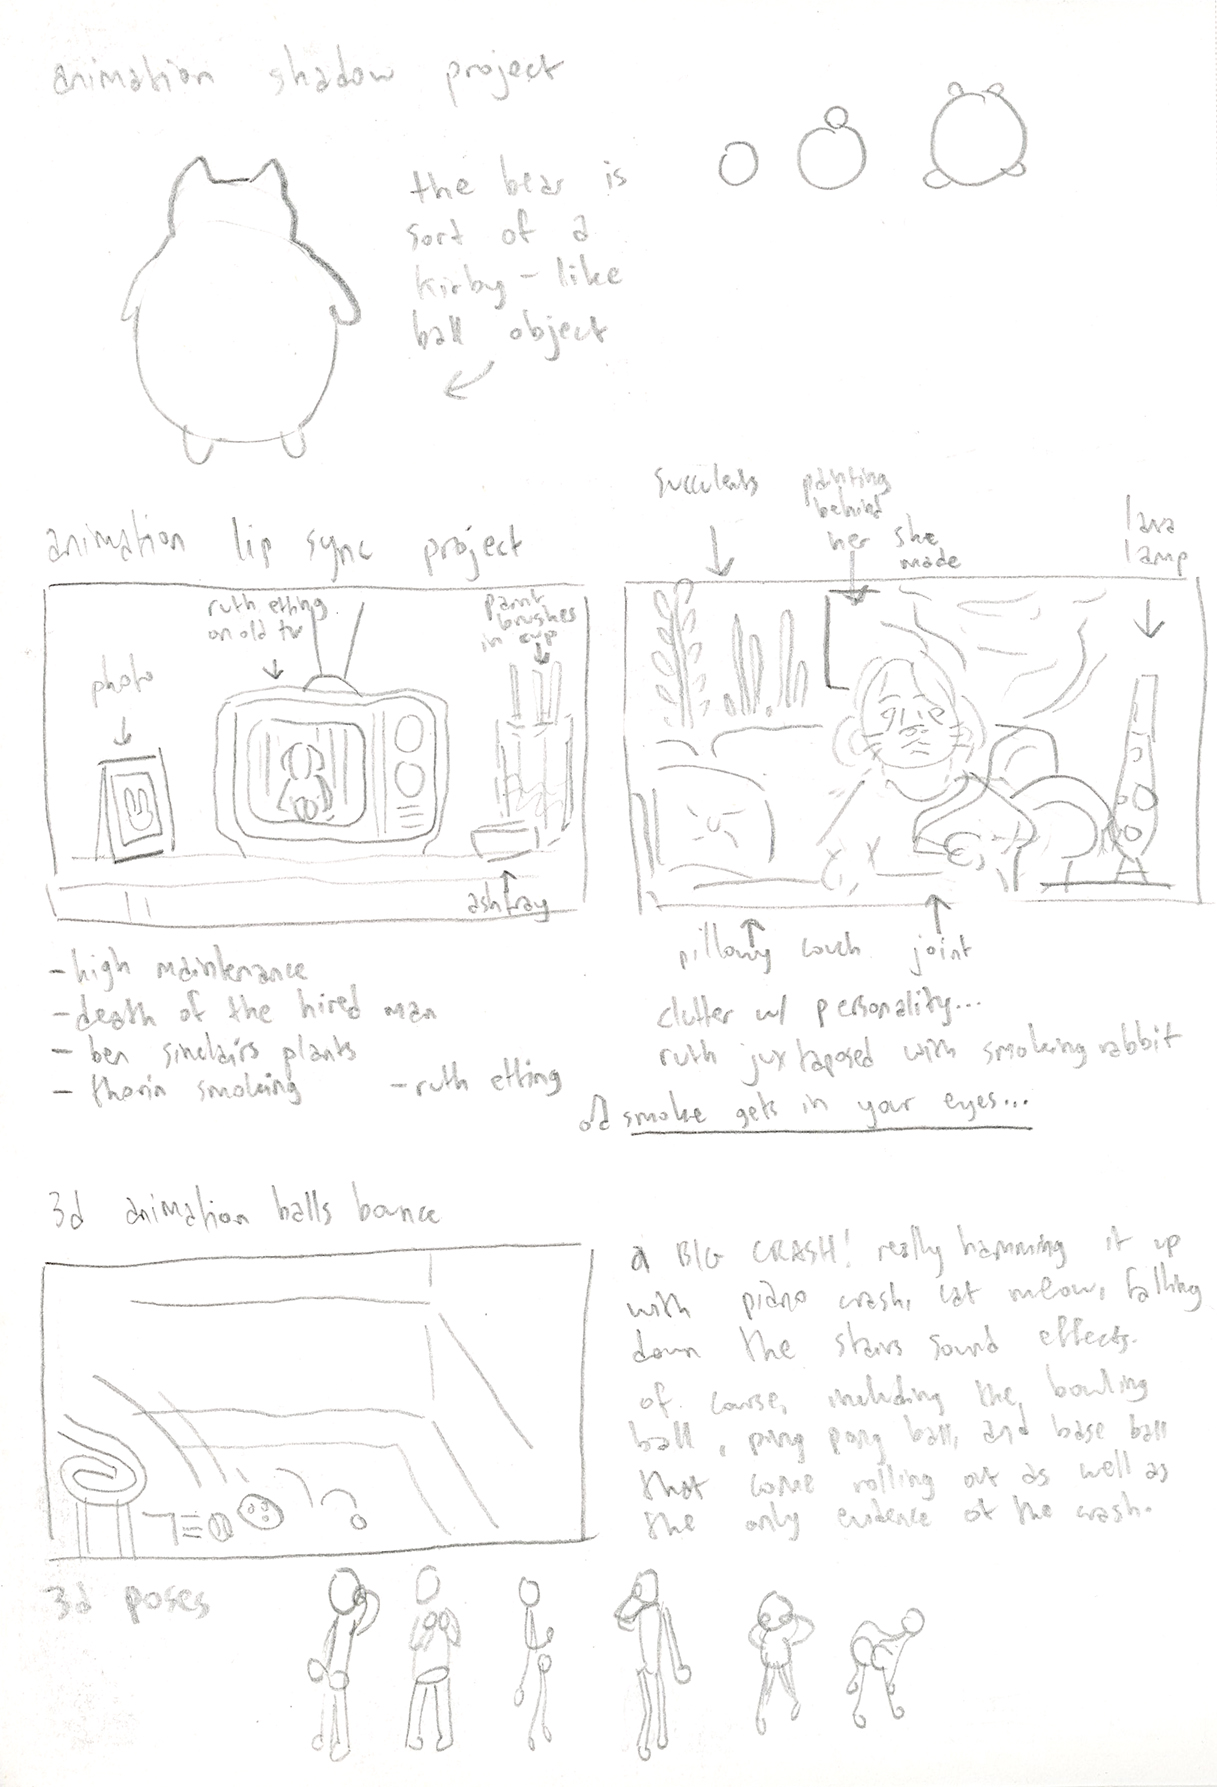 animation shadow project
the bear is
sort of a
kirby-like
ball object
animation lip sync project
ruth etting
on old tv
paint
brushes
in cup
photo
ashtray
succulents
painting
behind
her she
made
lava
lamp
pillowy couch
joint
- high maintenance
- death of the hired man
- ben sinclairs plants
- thorin smoking
- ruth etting
clutter w/ personality...
ruth juxtaposed with smoking rabbit
smoke gets in your eyes...
3d animation balls bounce
a BIG CRASH! really hamming it up
with piano crash, cat meow, falling
down the stairs sound effects.
of course, including the bowling
ball, ping pong ball, and base ball
that come rolling out as well as
the only evidence of the crash.
3d poses